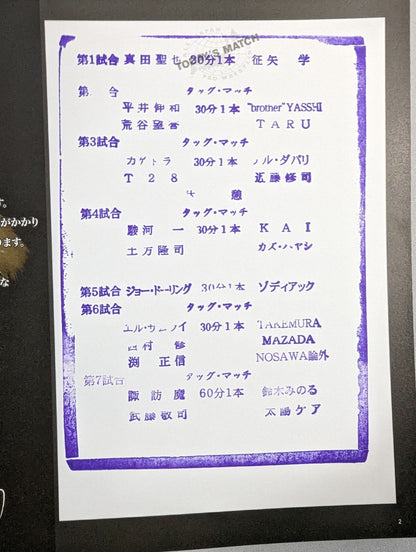 TODAY'S MATCH
第1試合 真田聖也 30分1本 征矢 学
第 合 タッグ・マッチ
平井伸和 30分1本 "brother" YASSHI
荒谷望誉 TARU
第3試合 タッグ・マッチ
カゲトラ 30分1本 ノル・ダバリ
T28 近藤修司
休憩
第4試合 タッグ・マッチ
駿河 一 30分1本 KAI
土方隆司 カズ・ハヤシ
第5試合 ジョー・ドーリング 30分1本 ゾディアック
第6試合 タッグ・マッチ
エル・サムライ 30分1本 TAKEMURA
西村 修 MAZADA
渕 正信 NOSAWA論外
第7試合 タッグ・マッチ
諏訪魔 60分1本 鈴木みのる
武藤敬司 太陽ケア
す。
がかかり
ります。
な
2